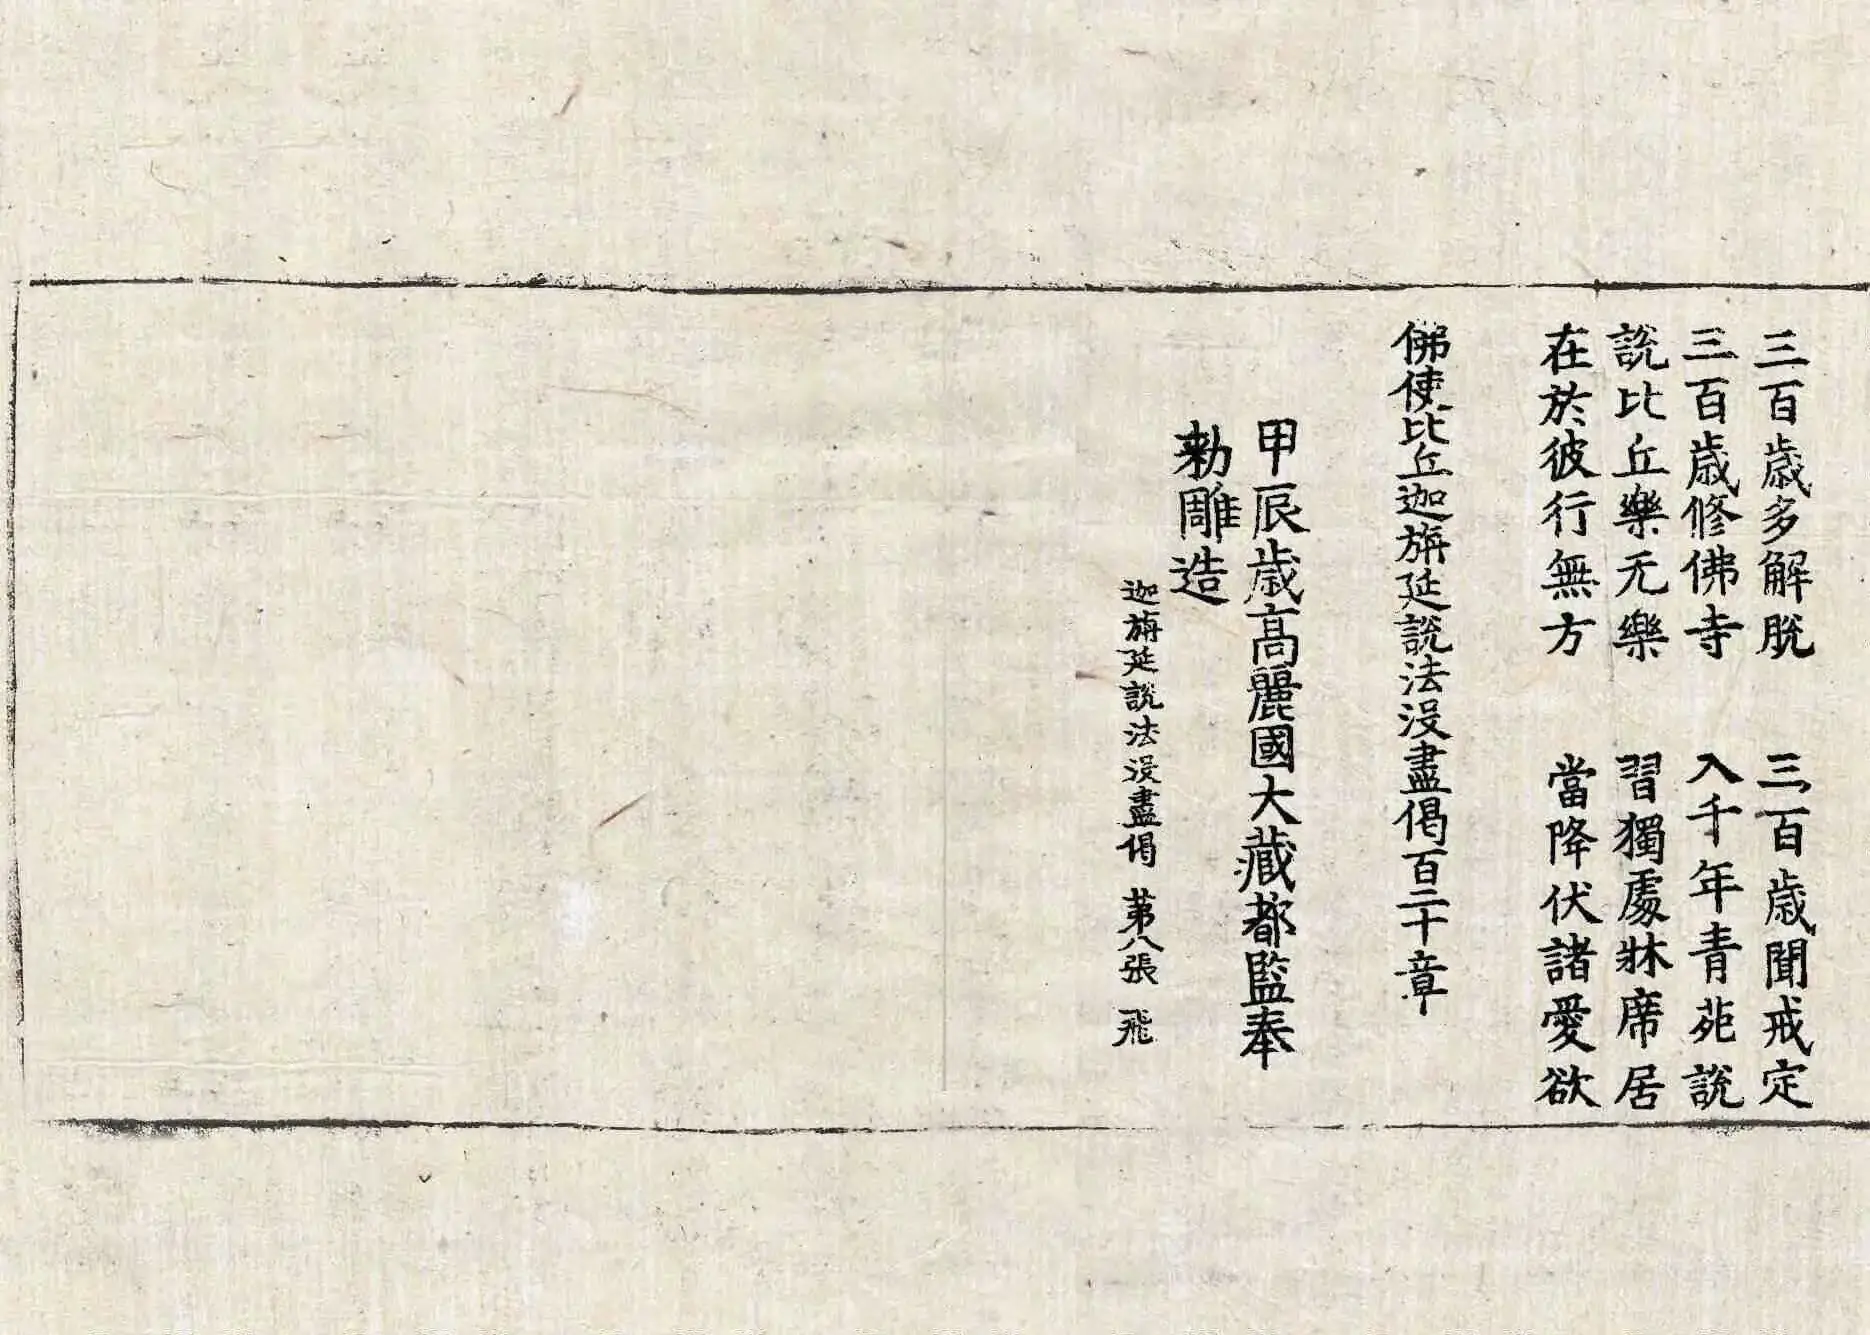 三百歲多解脫　三百歲聞戒定
三百歲修佛寺　入千年青苑說
說比丘樂无樂　習獨處牀席居
在於彼行無方　當降伏諸愛欲
佛使比丘迦旃延說法沒盡偈百二十章
甲辰歲高麗國大藏都監奉
勅雕造
迦旃延說法沒盡偈　第八張　飛